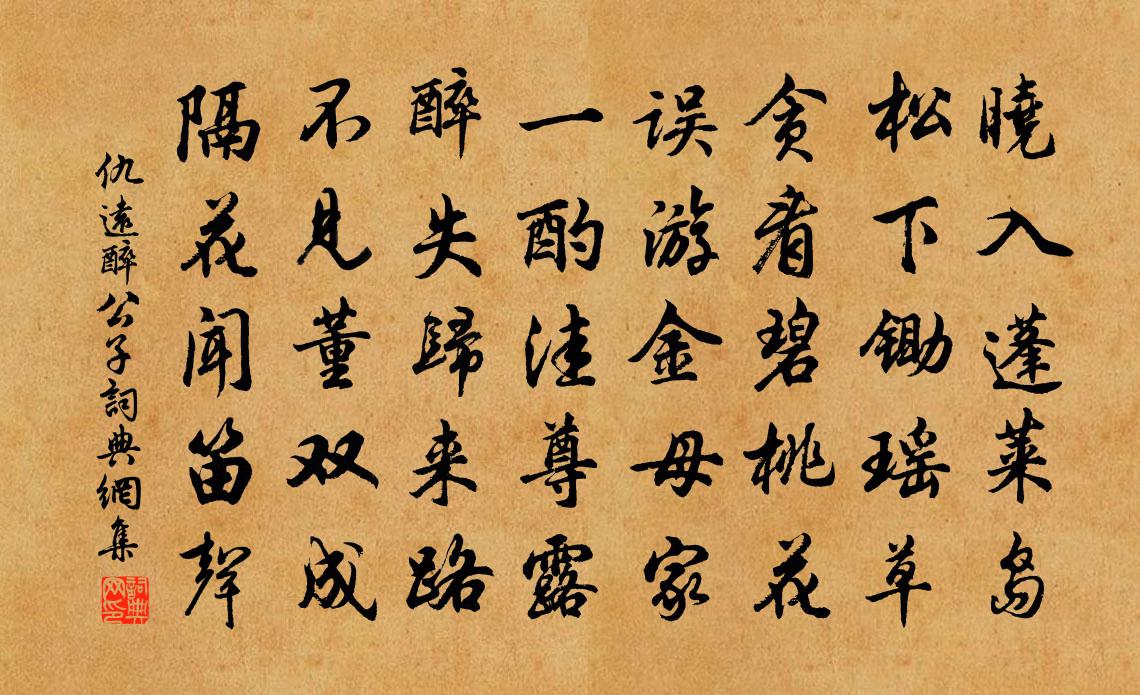 曉入蓬莱岛
松下锄瑶草
贪看碧桃花
误游金母家
一酌洼尊露
醉失歸来路
不见董双成
隔花闻笛聲
仇遠醉公子詞典網集
詞典网印